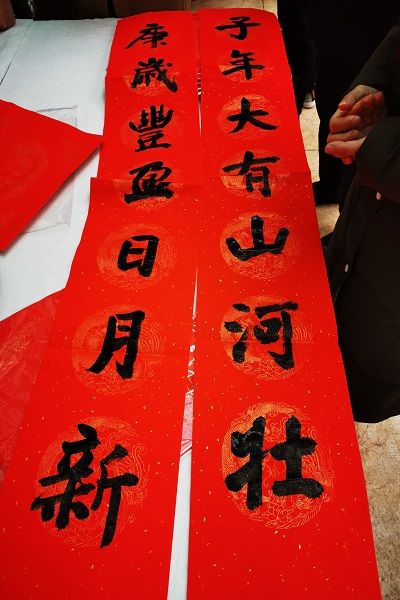 子年大有山河壮
庚歲豐盈日月新